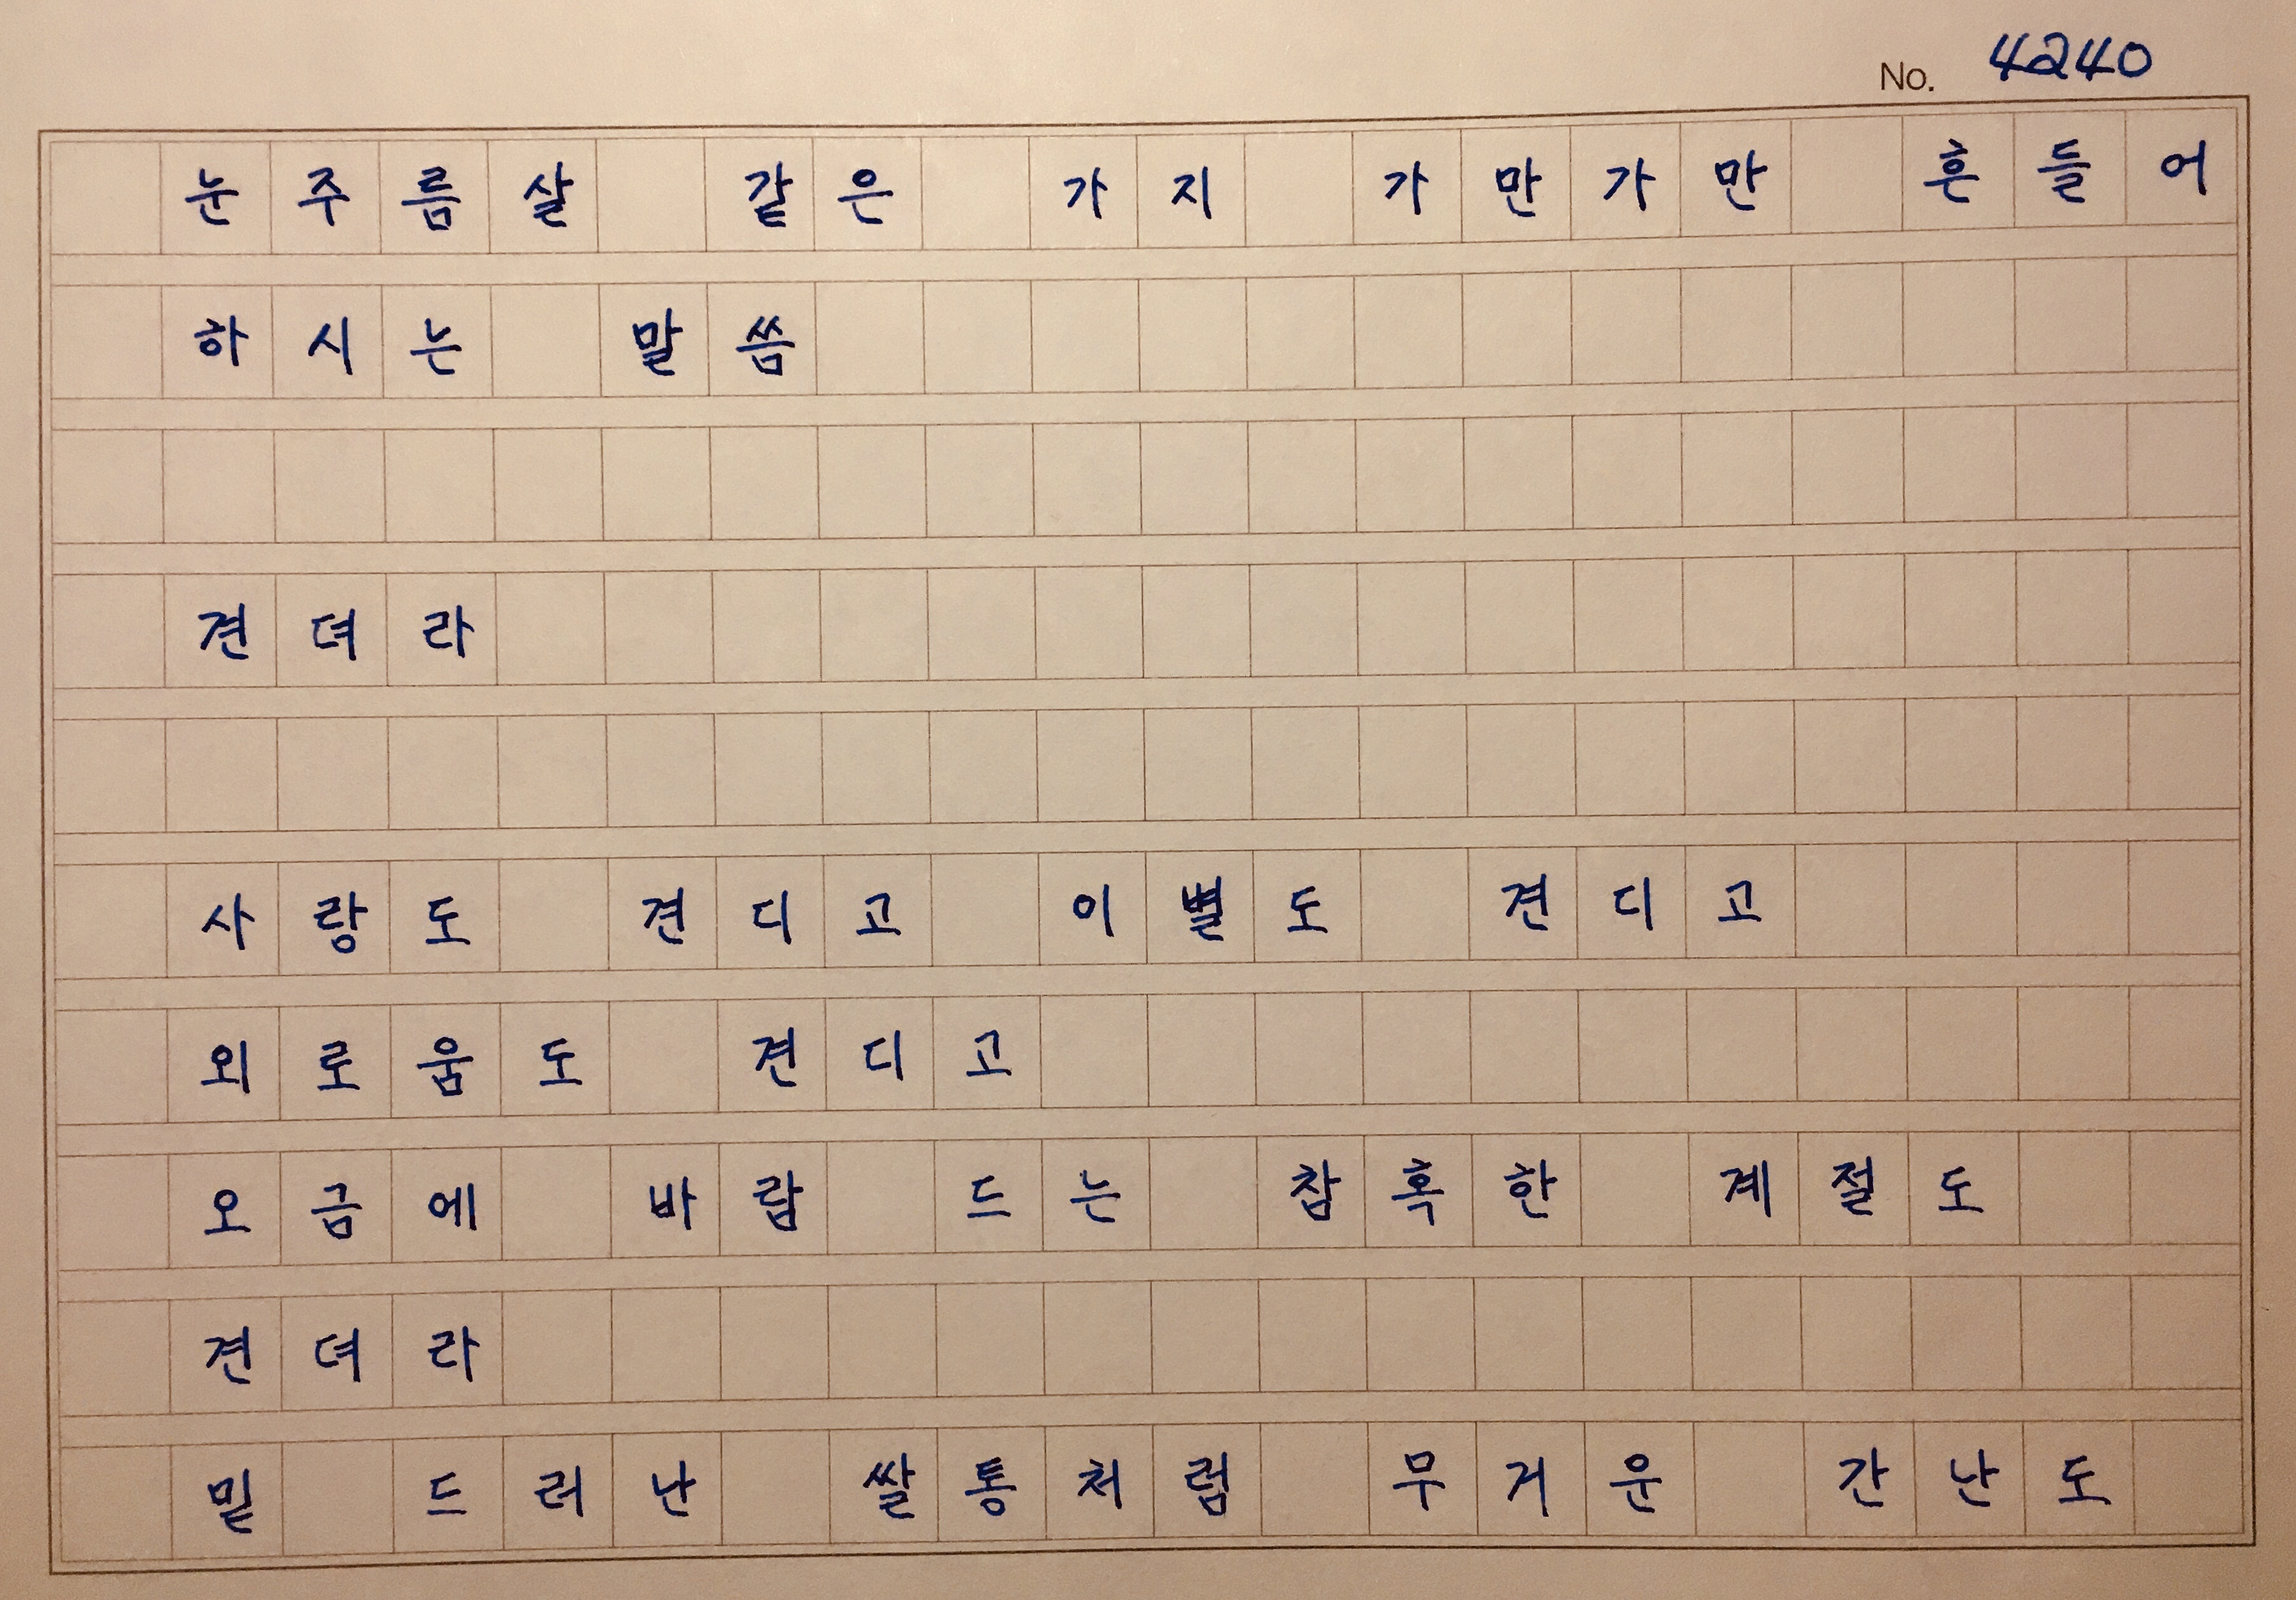 No. 4240
눈주름살 같은 가지 가만가만 흔들어
하시는 말씀
견뎌라
사랑도 견디고 이별도 견디고
외로움도 견디고
오금에 바람 드는 참혹한 계절도
견뎌라
밑 드러난 쌀통처럼 무거운 간난도